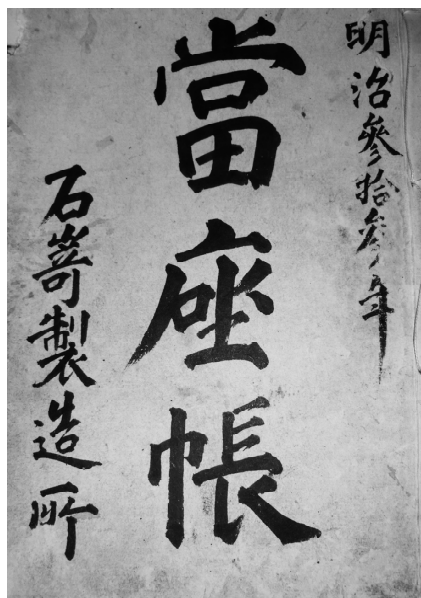 明治參拾參年
當座帳
石嵜製造所